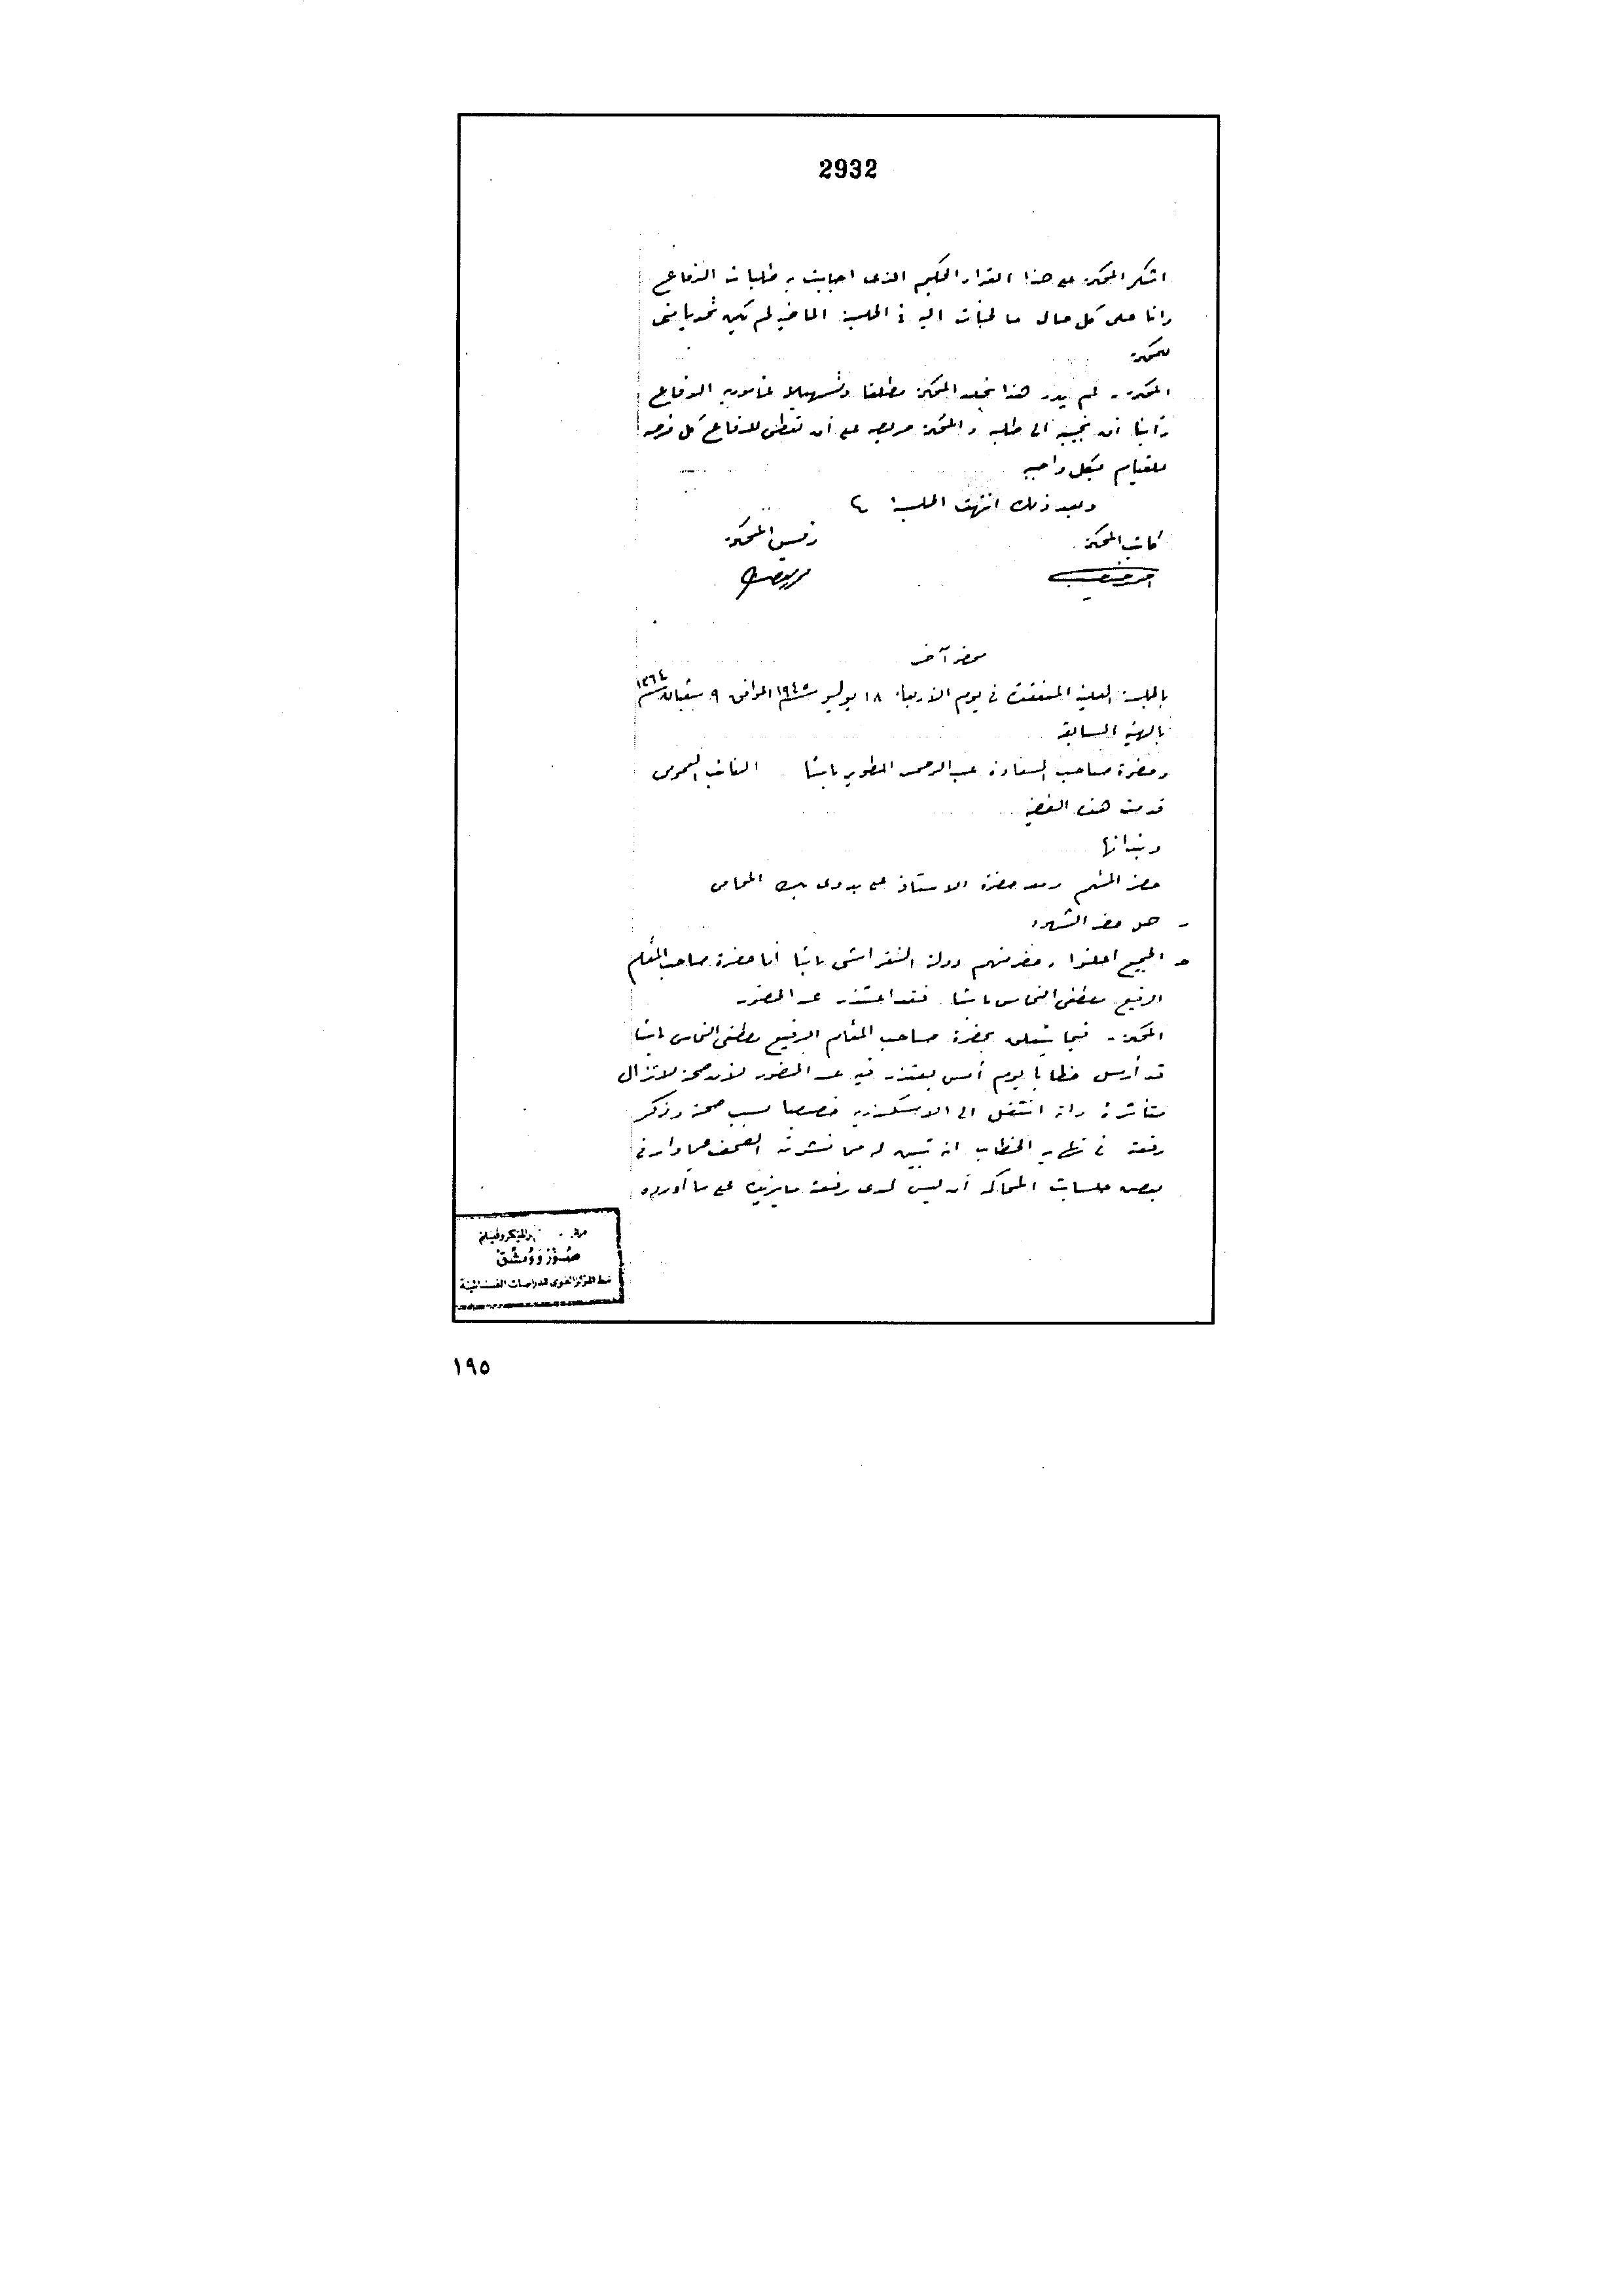 2932
اشكر المحكمة على هذا القرار الحكيم الذى اجابت به طلبات الدفاع
وانا على كل حال ما لجأت اليه فى الجلسة الماضية لم يكن تحديا منى
للمحكمة
المحكمة - لم يدر هذا بخلد المحكمة مطلقا وتسهيلا لمأمورية الدفاع
رأينا أن نجيبه الى طلبه والمحكمة حريصة على أن تعطى للدفاع كل فرصة
للقيام بكل واجبه
وبعد ذلك انتهت الجلسة
كاتب المحكمة
رئيس المحكمة
محضر آخر
بالجلسة العلنية المنعقدة فى يوم الأربعاء ١٨ يوليو سنة ١٩٤٥ الموافق ٩ شعبان سنة ١٣٦٤
بالهيئة السابقة
وحضرة صاحب السعادة عبد الرحمن الطوير باشا النائب العمومى
قدمت هذه القضية
وبندائها
حضر المتهم ومعه حضرة الاستاذ على بدوى بك المحامى
- هل حضر الشهود
ج الجميع اعلنوا وحضر منهم دولة النقراشى باشا أما حضرة صاحب المقام
الرفيع مصطفى النحاس باشا فقد اعتذر عن الحضور
المحكمة - فيما يتعلق بحضرة صاحب المقام الرفيع مصطفى النحاس باشا
قد أرسل خطابا يوم أمس يعتذر فيه عن الحضور لأن صحته لا تزال
متأثرة وانه انتقل الى الاسكندرية خصيصا بسبب صحته وذكر
رفعته فى نهاية الخطاب انه تبين له مما نشرته الصحف عما دار فى
بعض جلسات المحاكمة أن ليس لدى رفعته ما يزيده على ما أورده
والميكروفيلم
صُوّرَ وَوُثّقَ
١٩٥